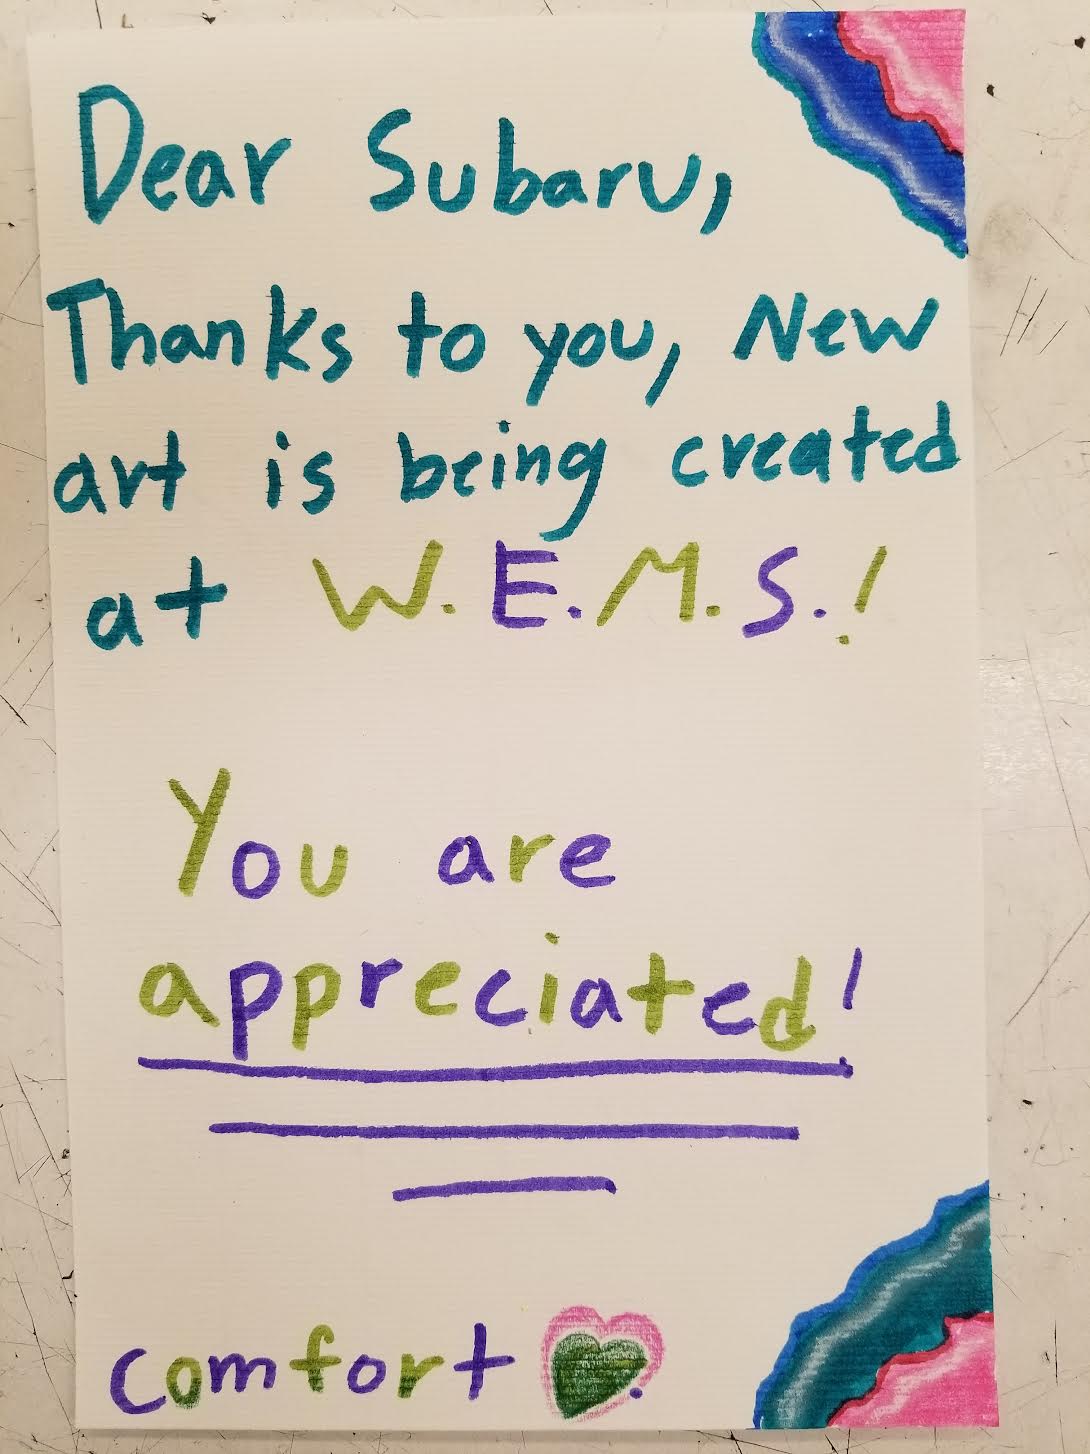 Dear Subaru,
Thanks to you, New
art is being created
at W.E.M.S.!
You are
appreciated!
comfort